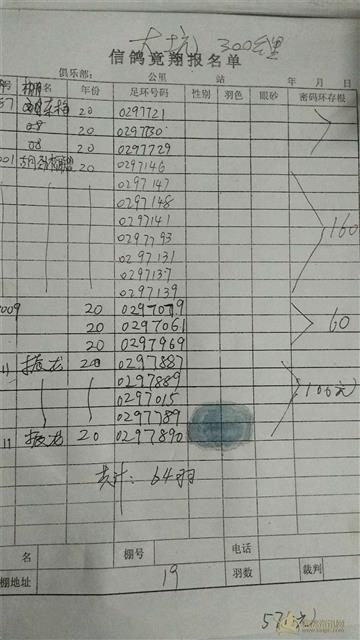 大坑 300公里
信鸽竟翔报名单
俱乐部： 公里 站 年 月 日
号 棚册 年份 足环号码 性别 羽色 眼砂 密码环存根
57 20 0297721
08 20 0297730
08 20 0297729
001 20 0297146
0297147
0297148
0297141
0297793
0297131
0297137
0297139
160
009 20 0297079
20 0297061 60
20 0297969
11 振龙 20 0297887
0297889 100元
0297015
0297789
11 振龙 20 0297890
共计：64羽
名 棚号 电话
棚地址 19 羽数 裁判